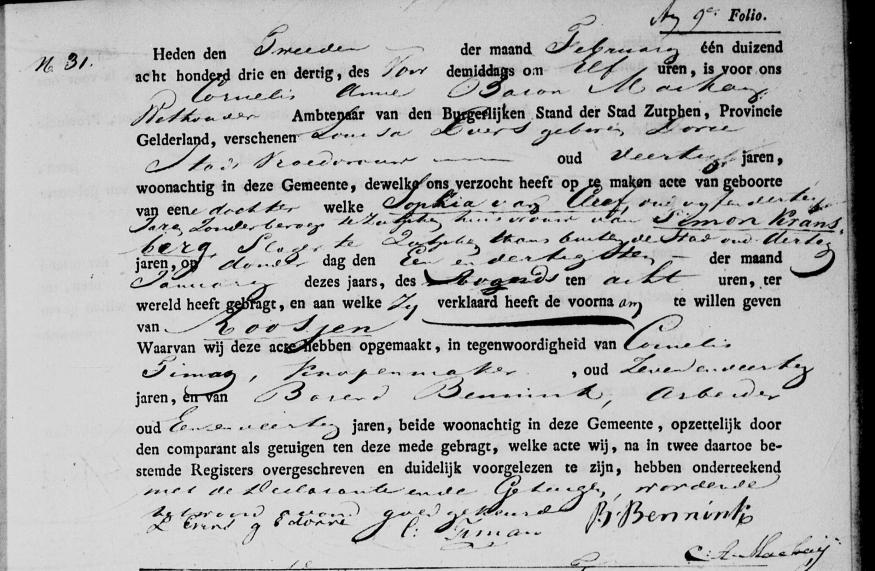 9e Folio.
N 31.
Heden den Tweeden der maand Februarij één duizend
acht honderd drie en dertig, des Voor demiddags om Elf uren, is voor ons
Cornelis Anne Baron Mackay
Wethouder Ambtenaar van den Burgerlijken Stand der Stad Zutphen, Provincie
Gelderland, verschenen Louisa Evers geboren Dorre
Stads Vroedvrouw oud Veertig jaren,
woonachtig in deze Gemeente, dewelke ons verzocht heeft op te maken acte van geboorte
van eene dochter welke Sophia van Cleef, oud vijf en dertig
Jaren Zonder beroep te Zutphen huisvrouw van Simon Krans-
berg Slager te Zutphen thans buiten de Stad oud dertig
jaren, op donder dag den Een en dertigsten der maand
Januarij dezes jaars, des Avonds ten acht uren, ter
wereld heeft gebragt, en aan welke Zij verklaard heeft de voorna am te willen geven
van Roosjen
Waarvan wij deze acte hebben opgemaakt, in tegenwoordigheid van Cornelis
Timan, Knopenmaker, oud Zeven en veertig
jaren, en van Barend Bennink, Arbeider
oud Een en veertig jaren, beide woonachtig in deze Gemeente, opzettelijk door
den comparant als getuigen ten deze mede gebragt, welke acte wij, na in twee daartoe be-
stemde Registers overgeschreven en duidelijk voorgelezen te zijn, hebben onderteekend
met de Declarante en de Getuigen, wordende
het woord goedgekeurd
L Evers g Dorre C: Timan B. Bennink
C A Mackaij